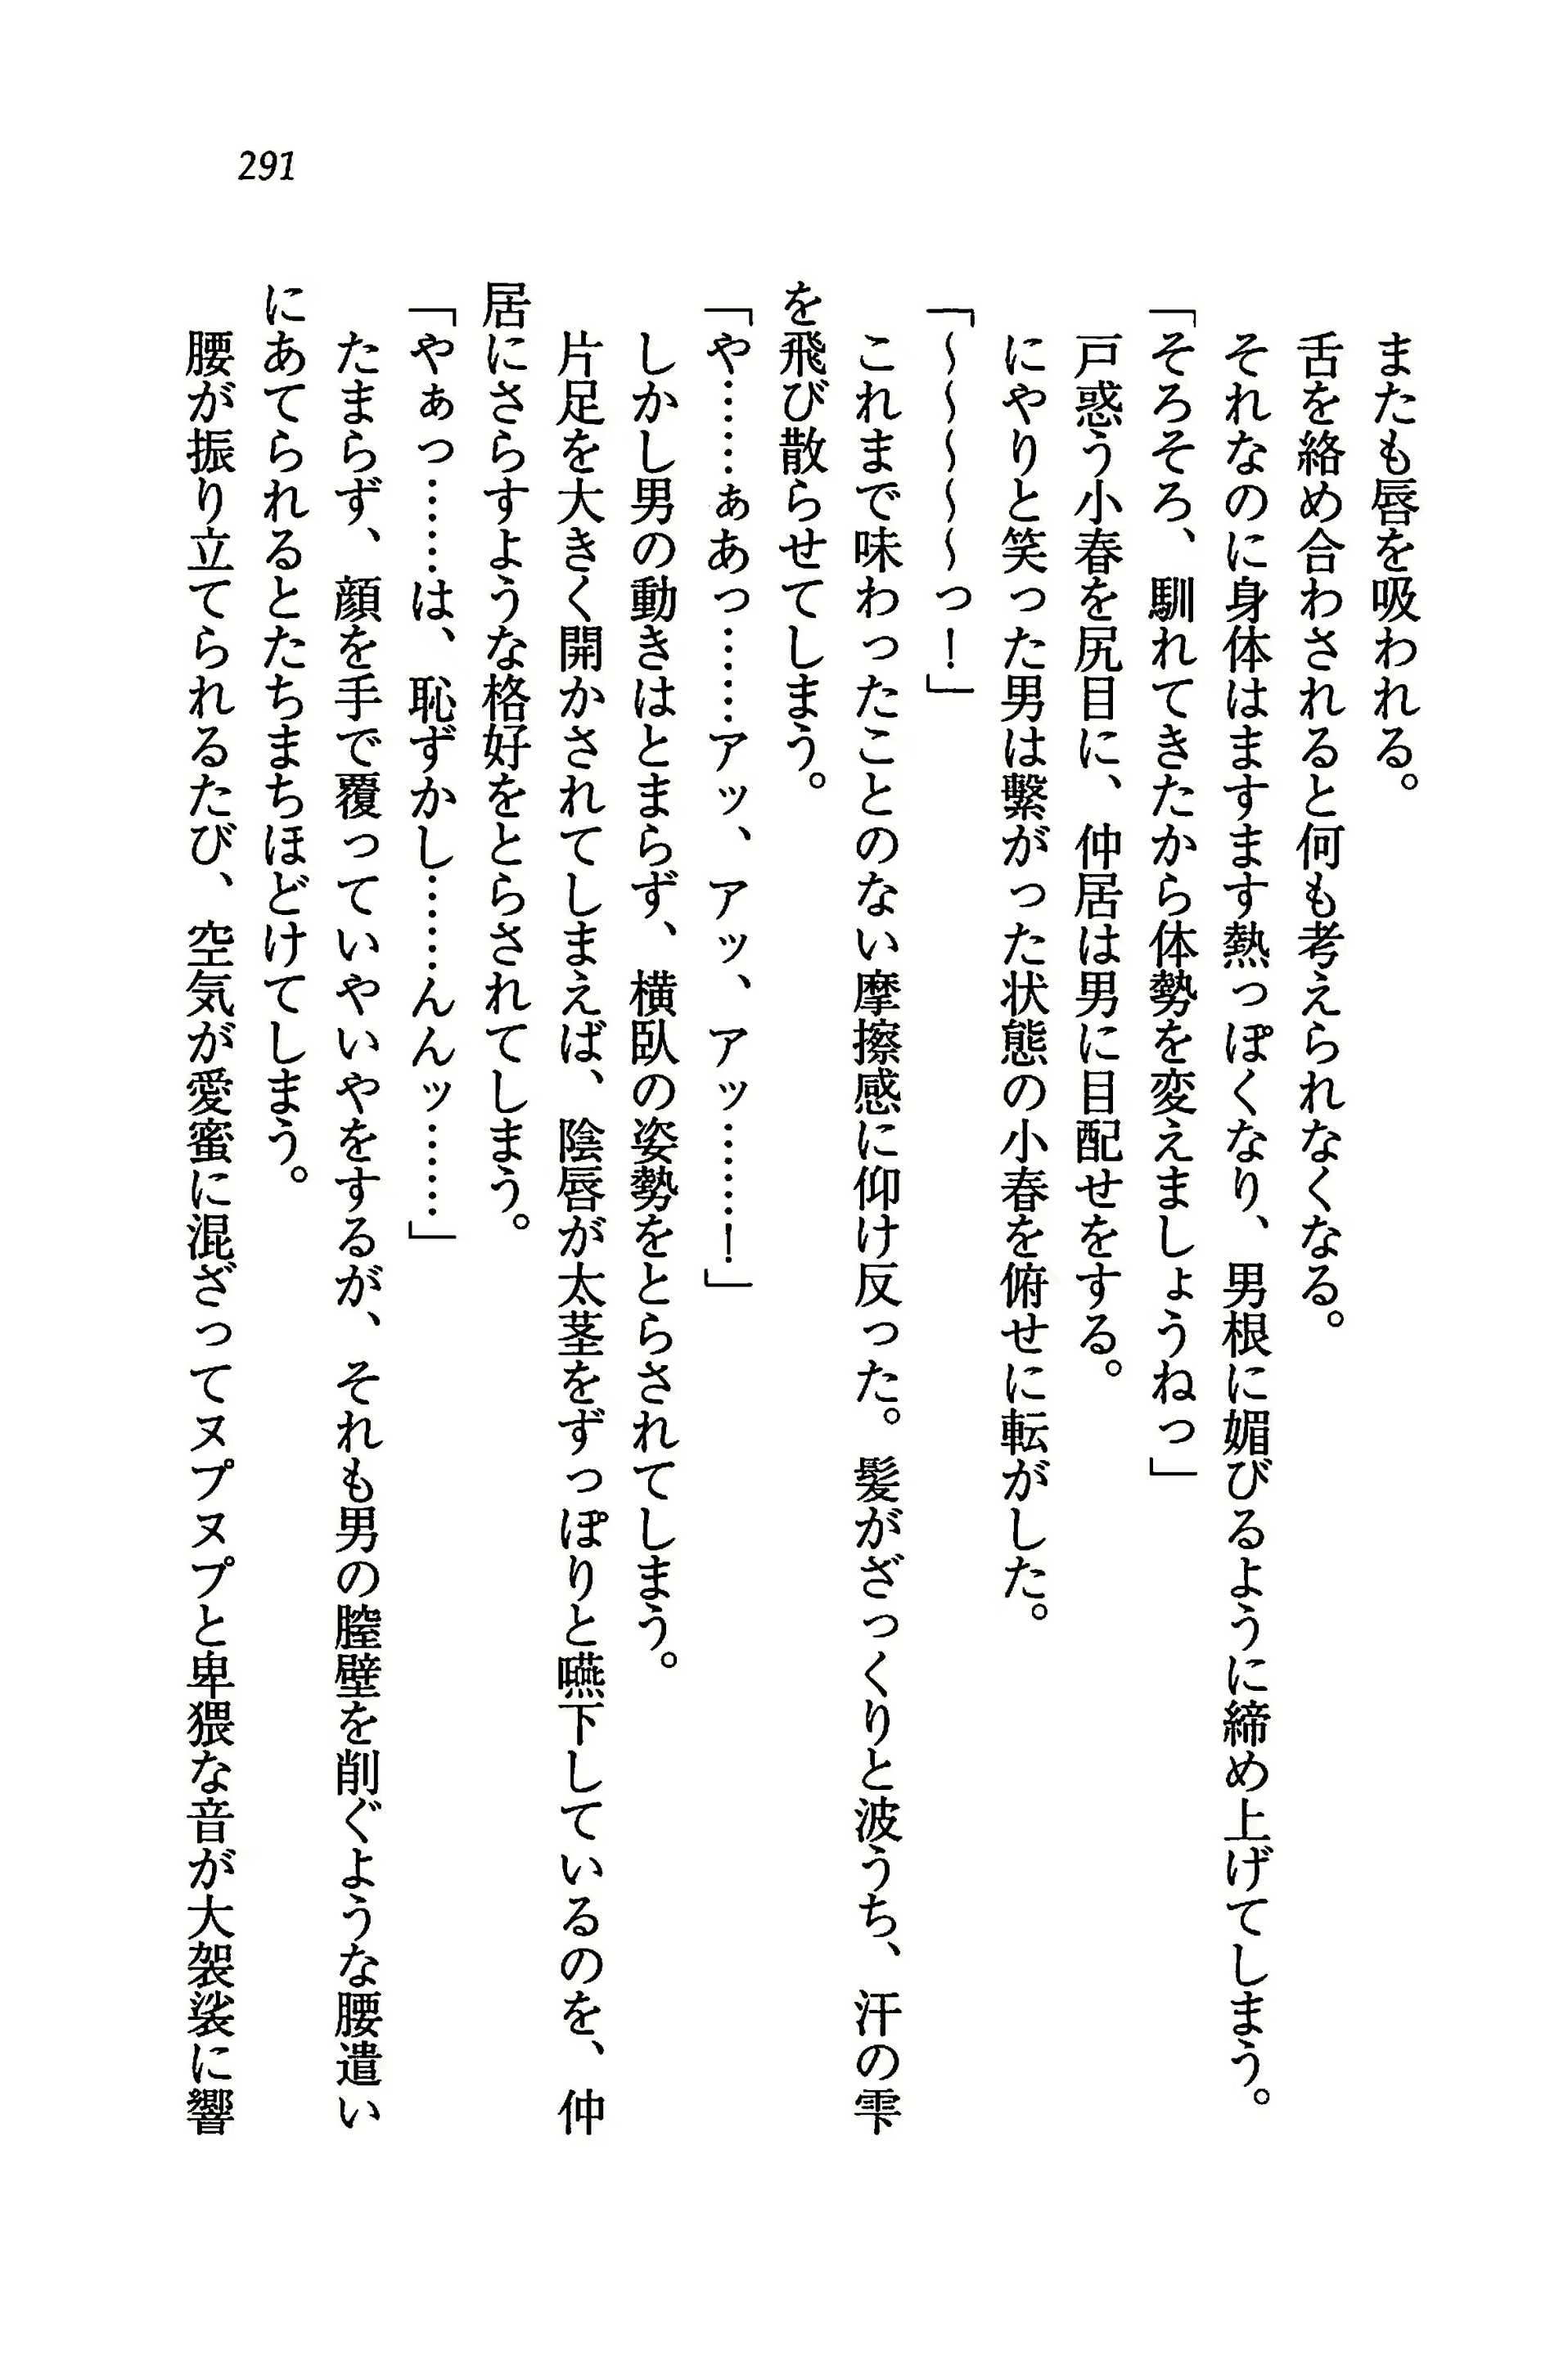 291
またも唇を吸われる。
舌を絡め合わされると何も考えられなくなる。
それなのに身体はますます熱っぽくなり、男根に媚びるように締め上げてしまう。
「そろそろ、馴れてきたから体勢を変えましょうねっ」
戸惑う小春を尻目に、仲居は男に目配せをする。
にやりと笑った男は繋がった状態の小春を俯せに転がした。
「～～～～～っ！」
これまで味わったことのない摩擦感に仰け反った。髪がざっくりと波うち、汗の雫
を飛び散らせてしまう。
「や……ぁあっ……アッ、アッ、アッ……！」
しかし男の動きはとまらず、横臥の姿勢をとらされてしまう。
片足を大きく開かされてしまえば、陰唇が太茎をずっぽりと嚥下しているのを、仲
居にさらすような格好をとらされてしまう。
「やぁっ……は、恥ずかし……んんッ……」
たまらず、顔を手で覆っていやいやをするが、それも男の膣壁を削ぐような腰遣い
にあてられるとたちまちほどけてしまう。
腰が振り立てられるたび、空気が愛蜜に混ざってヌプヌプと卑猥な音が大袈裟に響